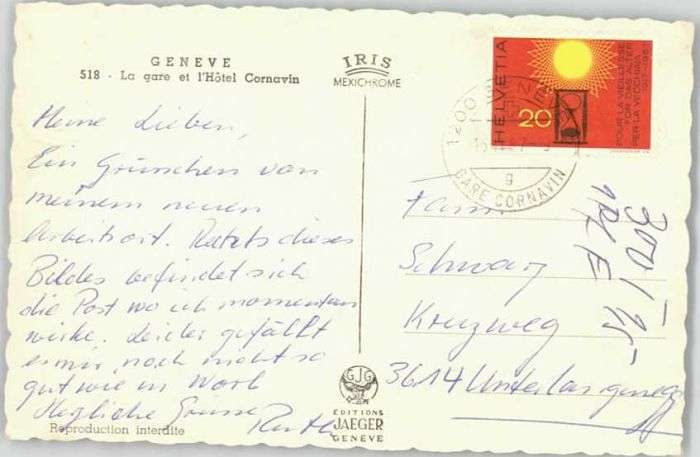 GENEVE
518 - La gare et l'Hôtel Cornavin
IRIS
MEXICHROME
Meine Lieben,
Ein Grüsschen von
meinem neuen
Arbeitsort. Rechts dieses
Bildes befindet sich
die Post wo ich momentan
wirke. Leider gefällt
es mir noch nicht so
gut wie in Worb
Herzliche Grüsse
Ruth
Reproduction interdite
HELVETIA
20
POUR LA VIEILLESSE
FÜR DAS ALTER
PER LA VECCHIAIA
1200
GARE CORNAVIN
g
Fam.
Schwarz
Kreuzweg
3614 Unterlangenegg
GJG
EDITIONS
JAEGER
GENEVE